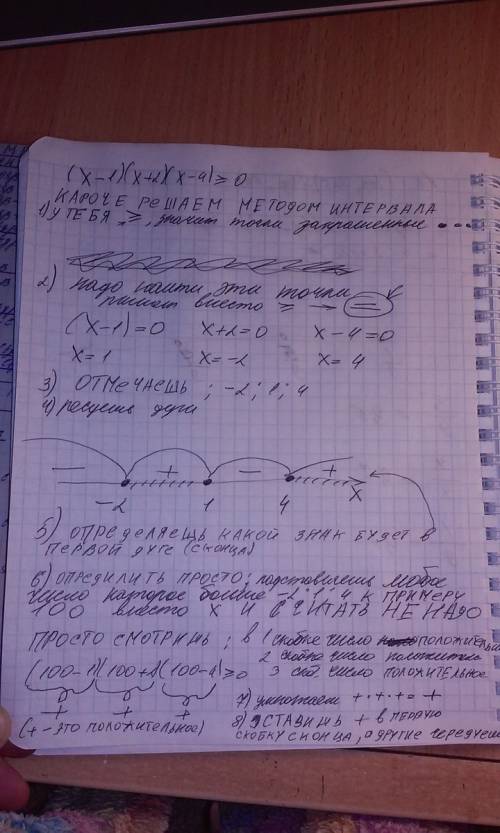 (x-1)(x+2)(x-4) ≥ 0
КАРОЧЕ РЕШАЕМ МЕТОДОМ ИНТЕРВАЛА
1) У ТЕБЯ „≥„ значит точки закрашенные • • •
2) надо найти эти точки
пишем вместо ≥ → =
(x-1)=0 x+2=0 x-4=0
x=1 x=-2 x=4
3) ОТМЕЧАЕШЬ ; -2; 1; 4
4) рисуешь дуги
— + — +
-2 1 4 x
5) ОПРЕДЕЛЯЕШЬ КАКОЙ ЗНАК БУДЕТ В
ПЕРВОЙ ДУГЕ (С КОНЦА)
6) ОПРЕДИЛИТЬ ПРОСТО; подставляешь любое
число которое больше -2; 1; 4 к ПРИМЕРУ
100 вместо X И СЧИТАТЬ НЕ НАДО
ПРОСТО СМОТРИШЬ; в 1 скобке число положительн
2 скобке число положитель
(100-1)(100+2)(100-4) ≥ 0 3 ск число положительное
+ + + 7) умножаем + · + · + = +
(+ - это положительное) 8) ОСТАВИШЬ + в первую
скобку с конца, а другие чередуеш